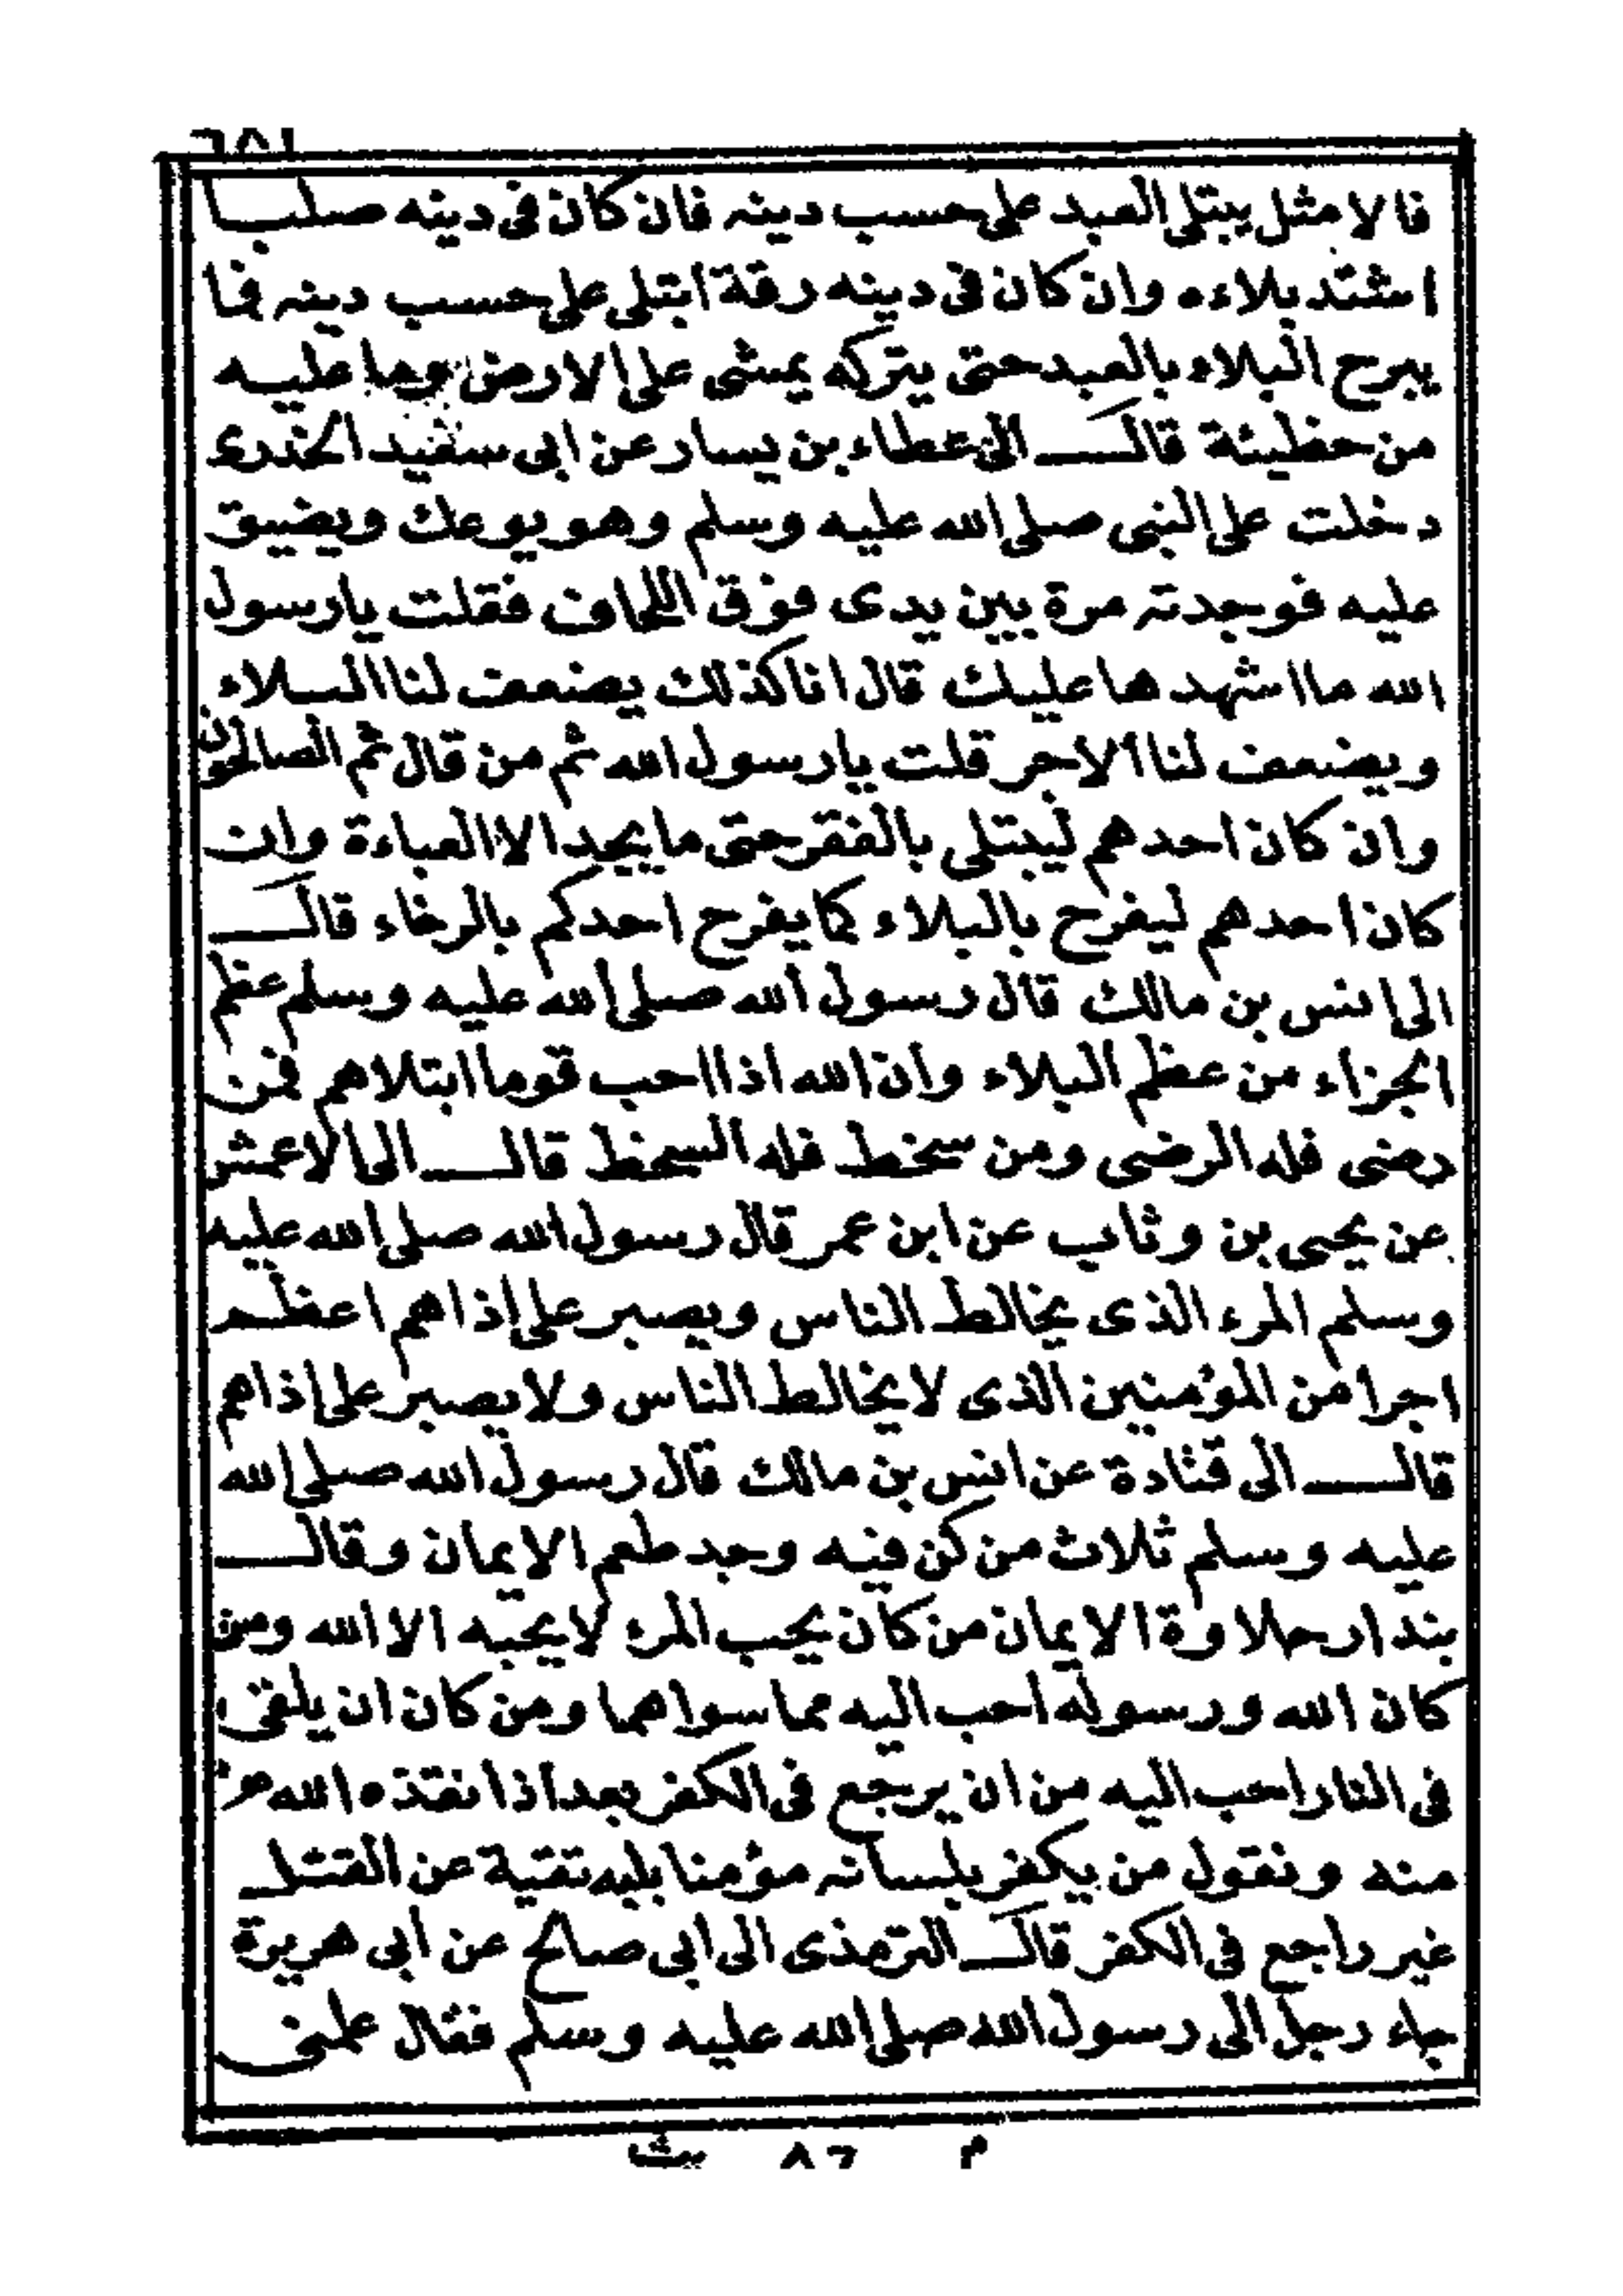 ٦٥١
فالامثل يبتلى العبد على حسب دينه فان كان فى دينه صلبا
اشتد بلاءه وان كان فى دينه رقة ابتلى على حسب دينه فما
يبرح البلاء بالعبد حتى يتركه يمشى على الارض وما عليه
من خطيئة قال الى عطاء بن يسار عن ابى سعيد الخدرى
دخلت على النبى صلى الله عليه وسلم وهو يوعك ويضيق
عليه فوجدته مرة بين يدى فوق اللحاف فقلت يا رسول
الله ما اشهدها عليك قال انا كذلك يضعف لنا البلاء
ويضعف لنا الاجر قلت يا رسول الله ثم من قال ثم الصالحون
وان كان احدهم ليبتلى بالفقر حتى ما يجد الا العباءة وان
كان احدهم ليفرح بالبلاء كما يفرح احدكم بالرخاء قال
الى انس بن مالك قال رسول الله صلى الله عليه وسلم عظم
الجزاء من عظم البلاء وان الله اذا احب قوما ابتلاهم فمن
رضى فله الرضى ومن سخط فله السخط قال الى الاعمش
عن يحيى بن وثاب عن ابن عمر قال رسول الله صلى الله عليه
وسلم المرء الذى يخالط الناس ويصبر على اذاهم اعظم
اجرا من المؤمنين الذى لا يخالط الناس ولا يصبر على اذاهم
قال الى قتادة عن انس بن مالك قال رسول الله صلى الله
عليه وسلم ثلاث من كن فيه وجد طعم الايمان وقال
بندار حلاوة الايمان من كان يحب المرء لا يحبه الا الله ومن
كان الله ورسوله احب اليه مما سواهما ومن كان ان يلقى
فى النار احب اليه من ان يرجع فى الكفر بعد اذ انقذه الله
منه ونقول من يكفر بلسانه مؤمنا بقلبه تقية عن القتل
غير راجع فى الكفر قال الترمذى الى ابى صالح عن ابى هريرة
جاء رجل الى رسول الله صلى الله عليه وسلم فقال علمنى
م ٨٢ يث